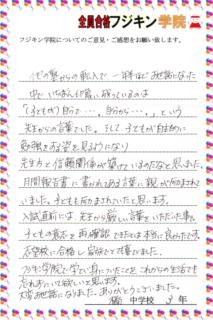 全員合格フジキン学院
フジキン学院についてのご意見・ご感想をお願い致します。
他の塾からの転入で一年ほどお世話になった
中で、いちばん印象に残っているのは
「子どもが自分で…、自分から…。」という
先生からの言葉でした。そして、子どもが自主的に
勉強する姿を見るようになり
先生方と信頼関係が築けているのだなと思いました。
月間報告書に書かれてある言葉に、親が励まされて
いました。子どもも励まされていたと思います。
入試直前には、先生から厳しい言葉をいただいた事で
子どもの気持を再確認できたことは本当に良かったです。
志望校に合格し家族で大喜びでした。
フジキン学院で学び身につけたことを、これからの生活でも
忘れずにいて欲しいと思います。
大変お世話になりました。ありがとうございました。
中学校 3年